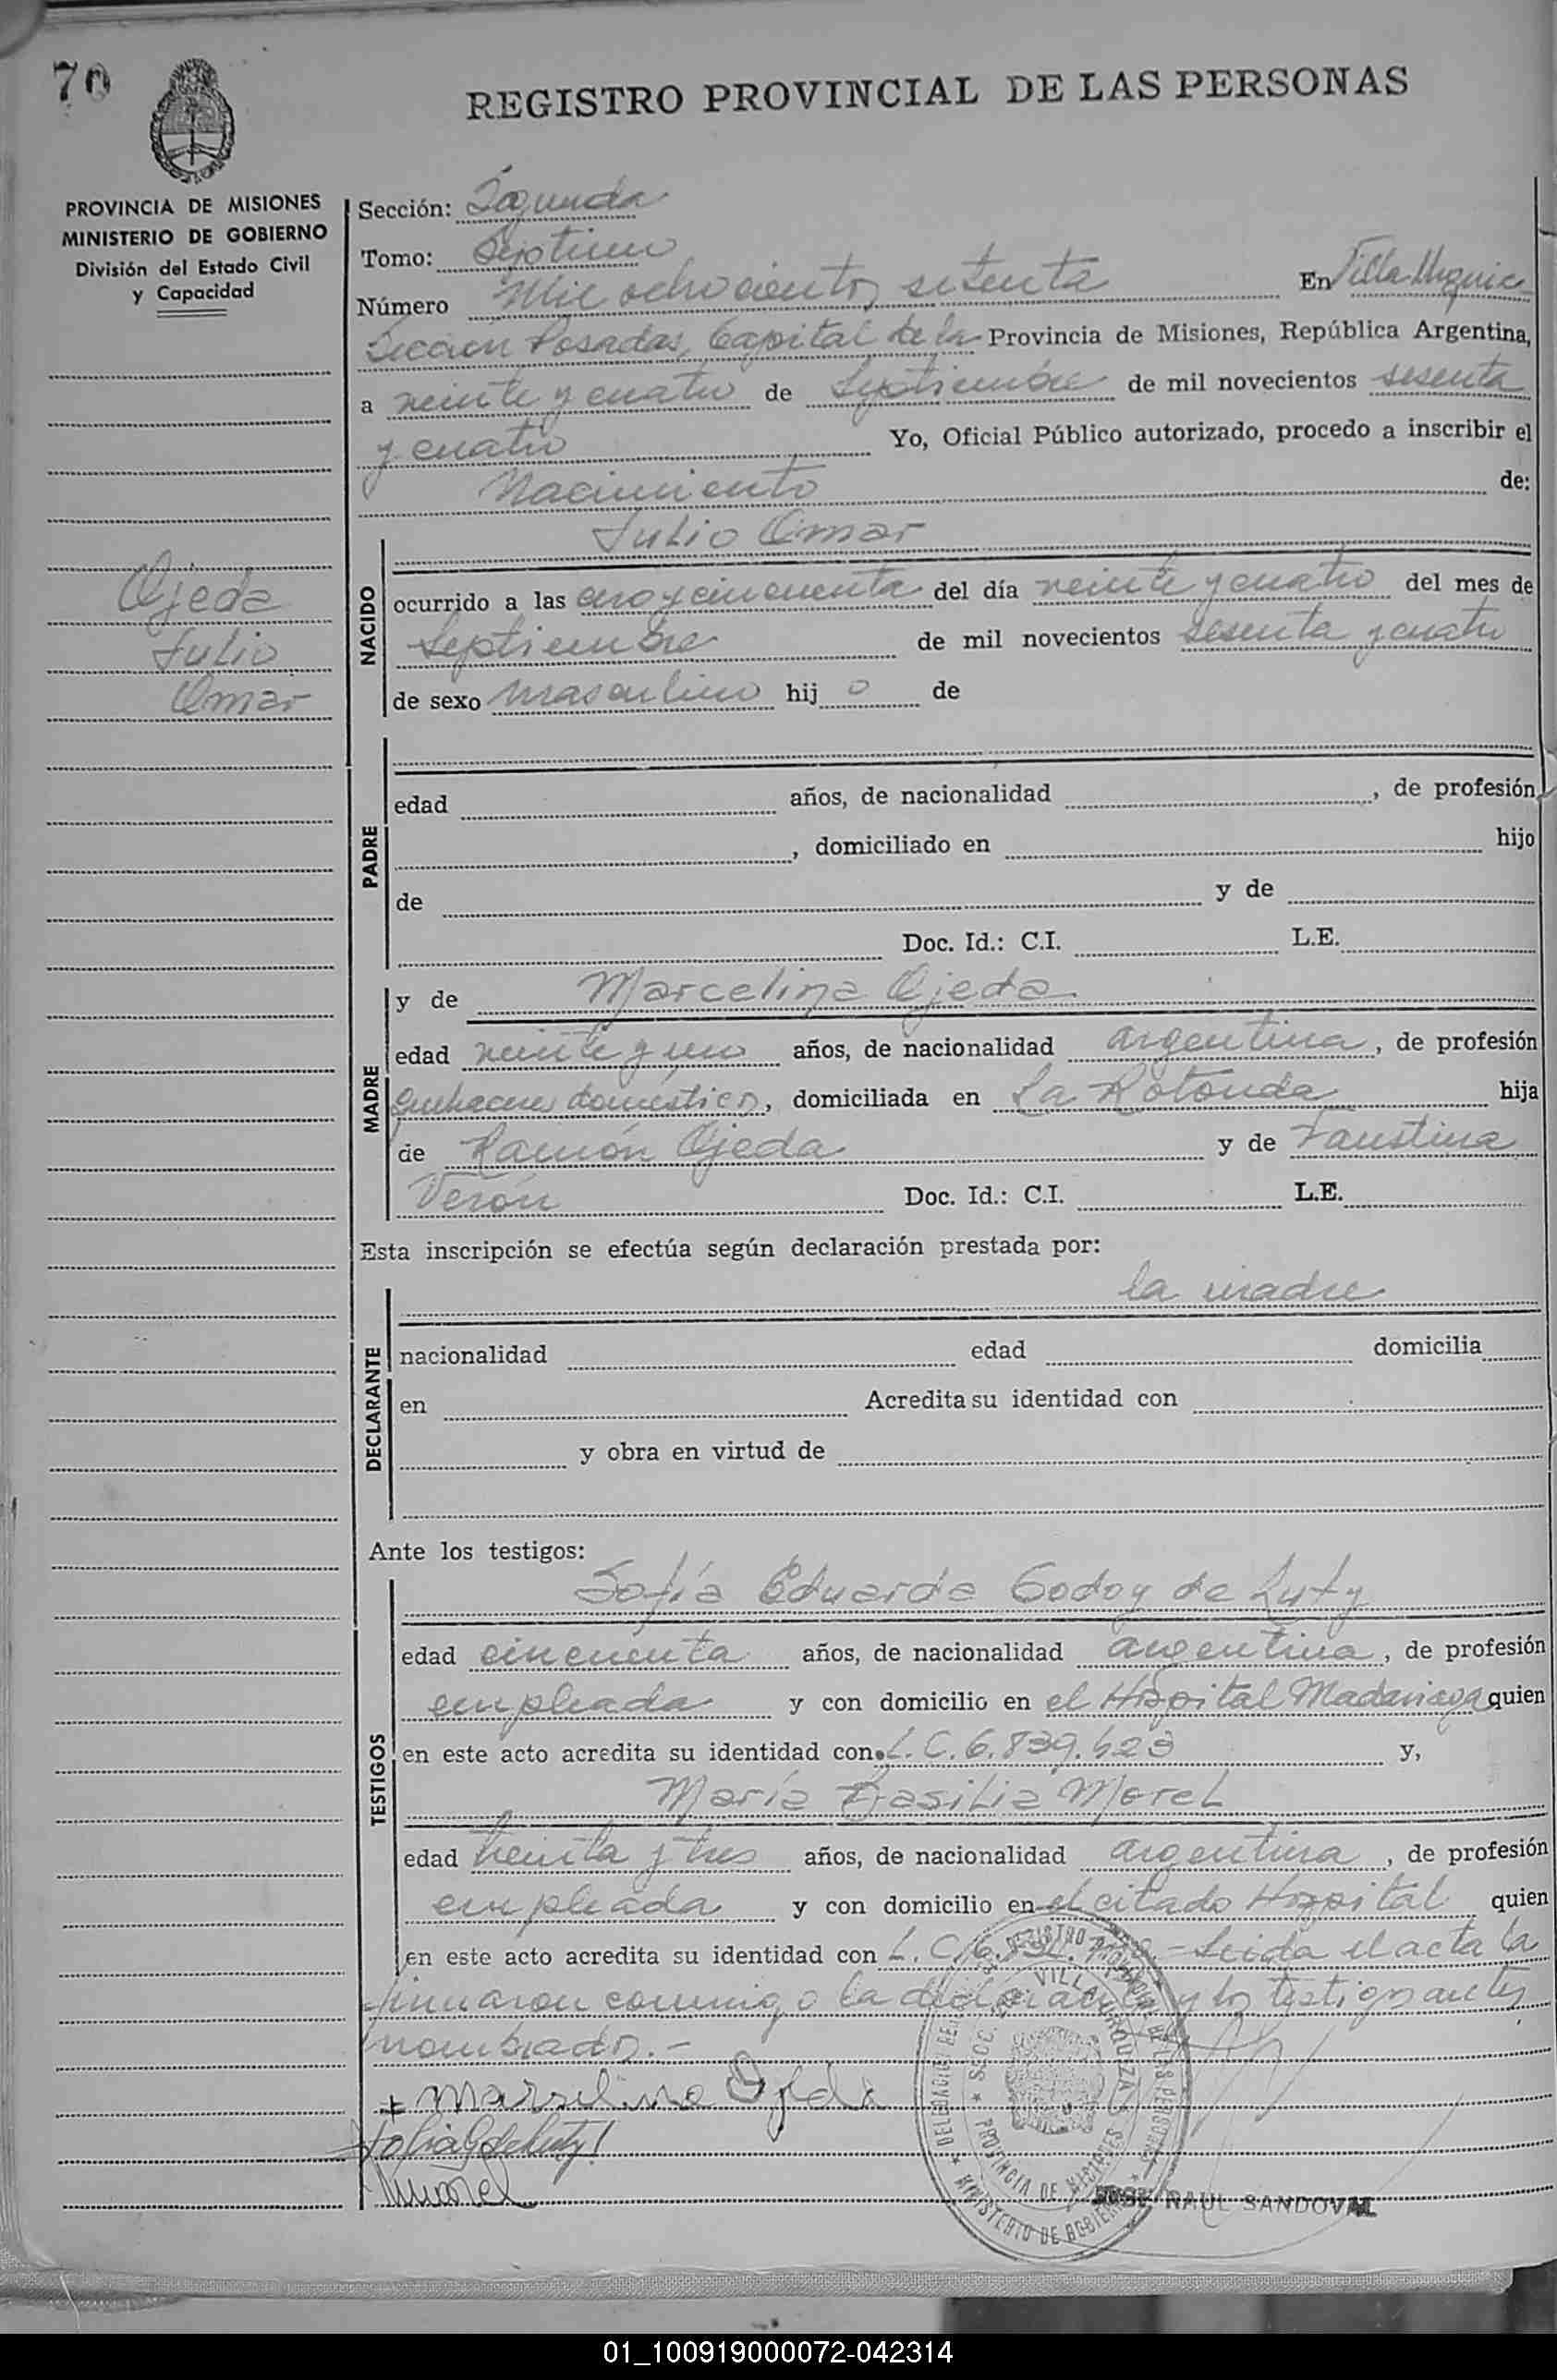 70
REGISTRO PROVINCIAL DE LAS PERSONAS
PROVINCIA DE MISIONES
MINISTERIO DE GOBIERNO
División del Estado Civil
y Capacidad
Ojeda
Julio
Omar
Sección: Segunda
Tomo: Séptimo
Número Mil ochocientos setenta En Villa Urquiza
Sección Posadas, Capital de la Provincia de Misiones, República Argentina,
a veinte y cuatro de Septiembre de mil novecientos sesenta
y cuatro Yo, Oficial Público autorizado, procedo a inscribir el
Nacimiento de:
NACIDO
Julio Omar
ocurrido a las cero y cincuenta del día veinte y cuatro del mes de
Septiembre de mil novecientos sesenta y cuatro
de sexo masculino hijo de
PADRE
edad años, de nacionalidad , de profesión
, domiciliado en hijo
de y de
Doc. Id.: C.I. L.E.
MADRE
y de Marcelina Ojeda
edad veinte y un años, de nacionalidad argentina, de profesión
quehaceres domésticos, domiciliada en La Rotonda hija
de Ramón Ojeda y de Faustina
Verón Doc. Id.: C.I. L.E.
Esta inscripción se efectúa según declaración prestada por:
DECLARANTE
la madre
nacionalidad edad domicilia
en Acredita su identidad con
y obra en virtud de
Ante los testigos:
TESTIGOS
Sofía Eduarda Godoy de Luty
edad cincuenta años, de nacionalidad argentina, de profesión
empleada y con domicilio en el Hospital Madariaga quien
en este acto acredita su identidad con L. C. 6.839.623 y,
María Basilia Morel
edad treinta y tres años, de nacionalidad argentina, de profesión
empleada y con domicilio en el citado Hospital quien
en este acto acredita su identidad con L. C. - Leida el acta la
firmaron conmigo la declarante y los testigos antes
nombrados.-
Marselina Ojeda
Morel
DELEGACION REGISTRO PROVINCIAL DE LAS PERSONAS
SECC. VILLA URQUIZA
PROVINCIA DE MISIONES
MINISTERIO DE GOBIERNO
JOSE RAUL SANDOVAL
01_100919000072-042314